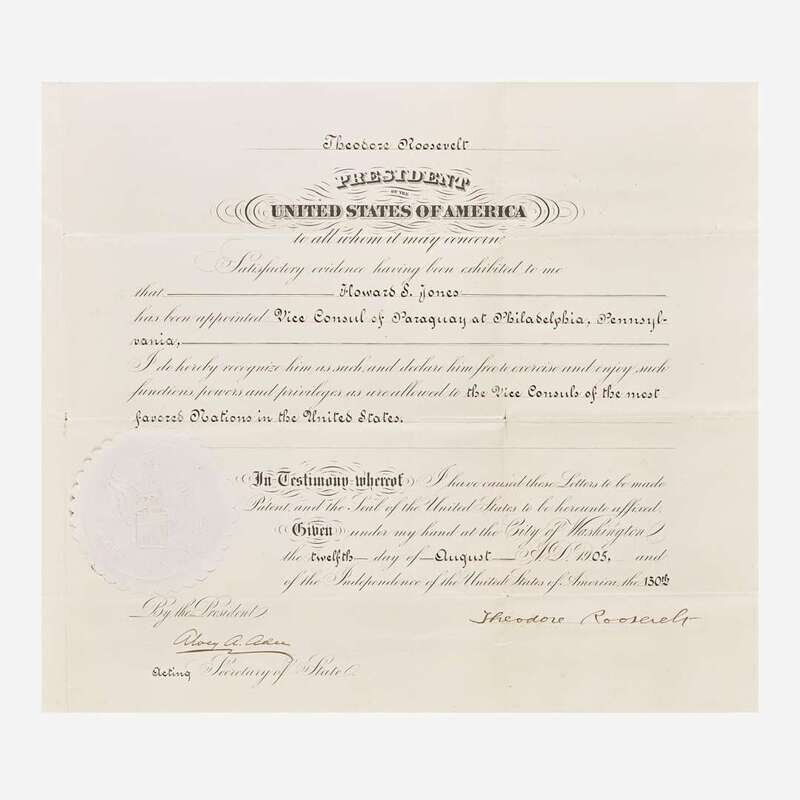 Theodore Roosevelt
PRESIDENT
OF THE
UNITED STATES OF AMERICA
to all whom it may concern:
Satisfactory evidence having been exhibited to me
that Howard S. Jones
has been appointed Vice Consul of Paraguay at Philadelphia, Pennsyl-
vania,
I do hereby recognize him as such, and declare him free to exercise and enjoy such
functions, powers and privileges as are allowed to the Vice Consuls of the most
favored Nations in the United States.
In Testimony whereof, I have caused these Letters to be made
Patent, and the Seal of the United States to be hereunto affixed.
Given under my hand at the City of Washington
the twelfth day of August A.D. 1905, and
of the Independence of the United States of America, the 130th
By the President,
Theodore Roosevelt
Alvey A. Adee
Acting Secretary of State.